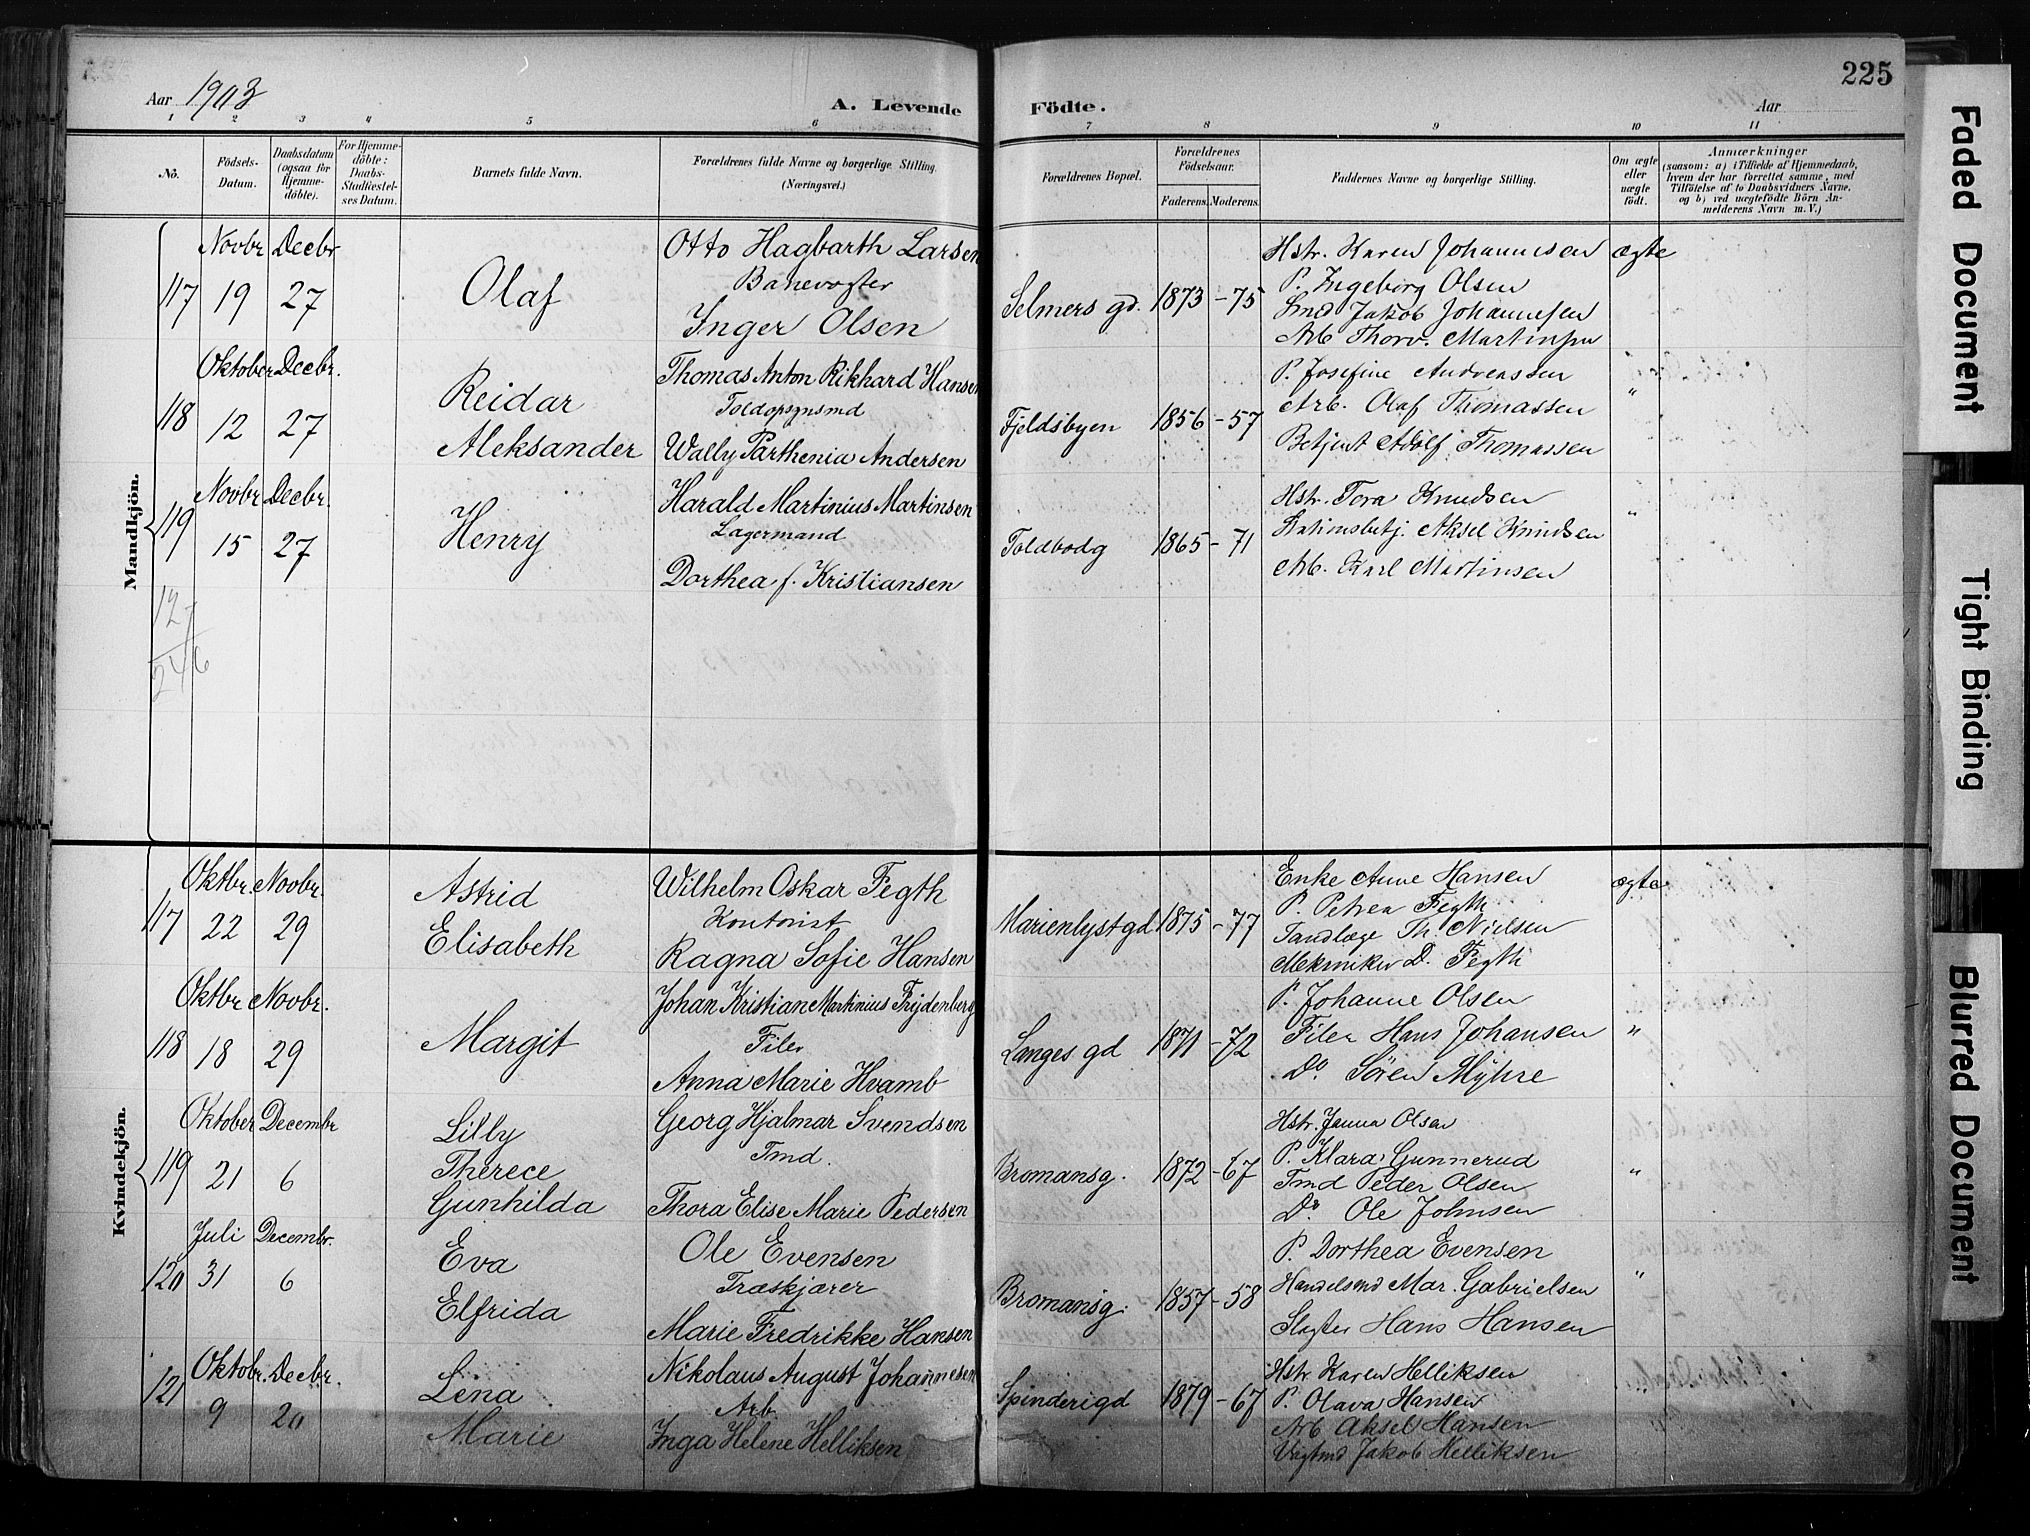 Aar 1903
A. Levende
Födte.
Aar
225
1 2 3 4 5 6 7 8 9 10 11
No.
Födsels-Datum.
Daabsdatum (ogsaa for Hjemme-döbte).
For Hjemme-döbte: Daabs-Stadfæstel-ses Datum.
Barnets fulde Navn.
Forældrenes fulde Navne og borgerlige Stilling.
(Næringsvei.)
Forældrenes Bopæl.
Forældrenes Födselsaar.
Faderens. Moderens.
Faddernes Navne og borgerlige Stilling.
Om ægte eller uægte födt.
Anmærkninger
(saasom: a) i Tilfælde af Hjemmedaab,
hvem der har forrettet samme, med
Tilföielse af to Daabsvidners Navne,
og b) ved uægtefödte Börn An-
melderens Navn m. V.)
Mandkjön.
117
Novbr 19
Decbr 27
Olaf
Otto Hagbarth Larsen
Banevogter
Inger Olsen
Selmers gd.
1873 - 75
Hstr. Karen Johannesen
P. Ingeborg Olsen
Smd Jakob Johannesen
Arb Thorv. Martinsen
ægte
118
Oktober 12
Decbr. 27
Reidar
Aleksander
Thomas Anton Rikhard Hansen
Toldopsynsmd
Wally Parthenia Andersen
Fjeldsbyen
1856 - 57
P. Josefine Andreassen
Arb. Olaf Thomassen
Betjent Adolf Thomassen
"
119
Novbr 15
Decbr. 27
Henry
Harald Martinius Martinsen
Lagermand
Dorthea f. Kristiansen
Toldbodg
1865 - 71
Hstr. Tora Knudsen
Stationsbetj. Aksel Knudsen
Arb. Karl Martinsen
"
127
246
Kvindekjön.
117
Oktbr. 22
Novbr. 29
Astrid
Elisabeth
Wilhelm Oskar Fegth
Kontorist
Ragna Sofie Hansen
Marienlystgd
1875 - 77
Enke Anne Hansen
P. Petrea Fegth
Tandlæge Th. Nielsen
Mekaniker D. Fegth
ægte
118
Oktbr 18
Novbr. 29
Margit
Johan Kristian Martinius Frydenberg
Filer
Anna Marie Hvamb
Langes gd
1871 - 72
P. Johanne Olsen
Filer Hans Johansen
Do. Sören Myhre
"
119
Oktober 21
Decembr 6
Lilly
Therece
Gunhilda
Georg Hjalmar Svendsen
Tmd.
Thora Elise Marie Pedersen
Bromansg.
1872 - 67
Hstr. Janna Olsen
P. Klara Gunnerud
Tmd Peder Olsen
Do. Ole Johnsen
"
120
Juli 31
Decembr. 6
Eva
Elfrida
Ole Evensen
Træskjærer
Marie Fredrikke Hansen
Bromansg.
1857 - 58
P. Dorthea Evensen
Handelsmd Mar. Gabrielsen
Slagter Hans Hansen
"
121
Oktobr. 9
Decbr. 20
Lena
Marie
Nikolaus August Johannesen
Arb
Inga Helene Helliksen
Spinderigd
1879 - 67
Hstr Karen Helliksen
P. Olava Hansen
Arb Aksel Hansen
Vagtmd Jakob Helliksen
"
Faded Document
Tight Binding
Blurred Document